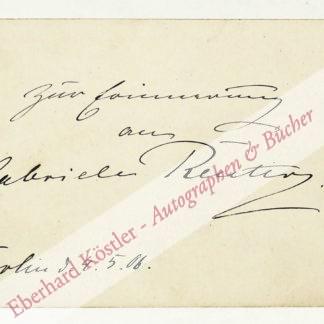 Zur Erinnerung
an
Gabriele Reuter.
Berlin d. 4.5.06.
Eberhard Köstler - Autographen & Bücher